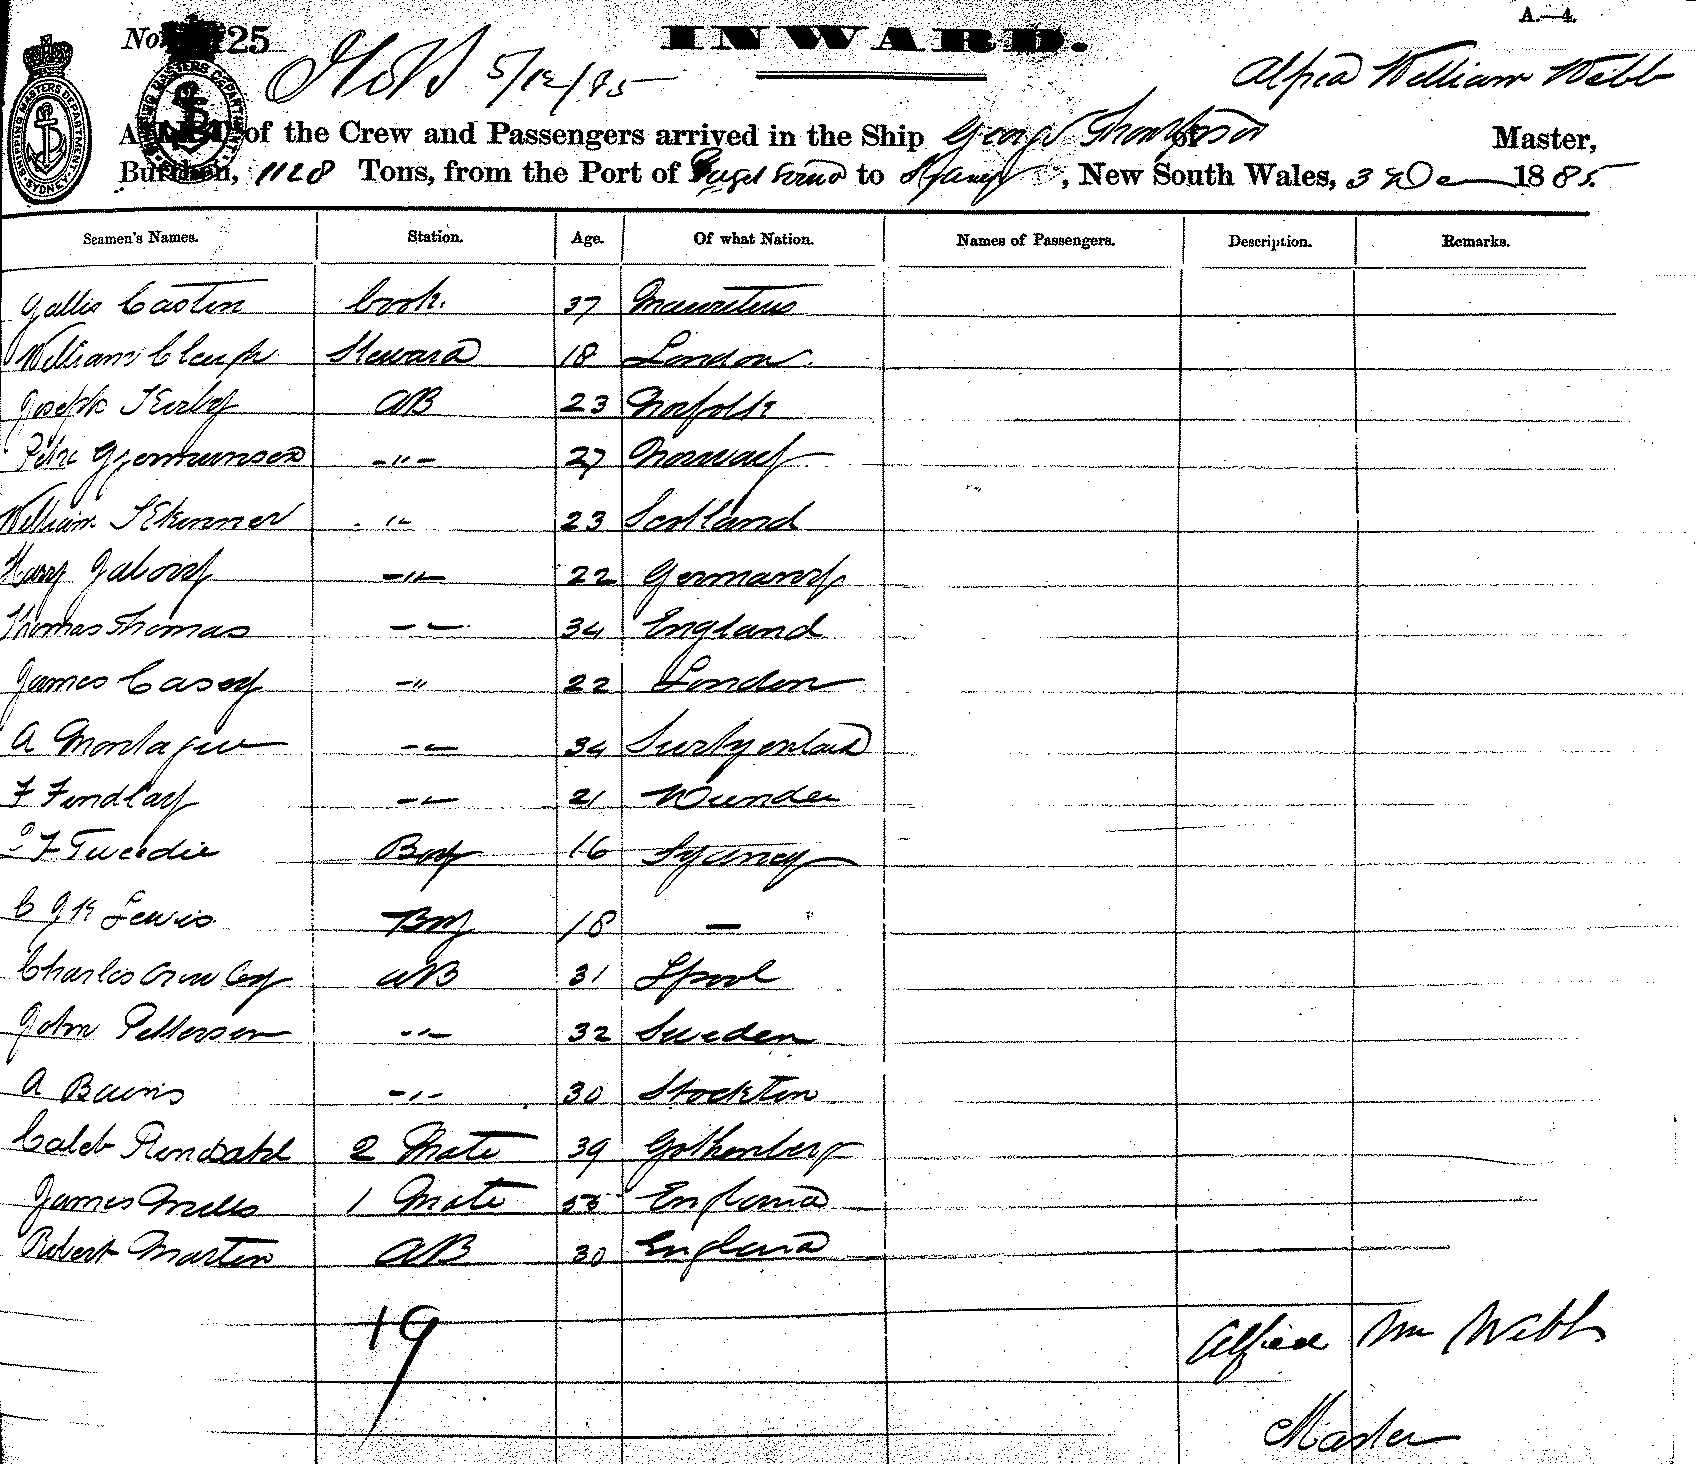 A.—4.
No. 25 INWARD.
5/12/85
Alfred William Webb
A LIST of the Crew and Passengers arrived in the Ship George Thompson of Master,
Burthen, 1128 Tons, from the Port of Puget Sound to Sydney, New South Wales, 3 Dec 1885
SHIPPING MASTERS DEPARTMENT SYDNEY
Seamen's Names. Station. Age. Of what Nation. Names of Passengers. Description. Remarks.
Castin Cook. 37 Mauritius
William Steward 18 London
Joseph Kirby AB 23 Norfolk
-"- 27 Norway
William Skinner "- 23 Scotland
Harry -"- 22 Germany
Thomas Thomas - - 34 England
James Casey -" 22 London
A Montague - - 34
F Findlay - - 21 Dundee
F Tweedie Boy 16 Sydney
Lewis Boy 18 —
Charles Crowley AB 31 Lpool
John Petterson -"- 32 Sweden
A -"- 30 Stockton
Caleb 2 Mate 39 Gothenberg
James Mills 1 Mate 55 England
Robert Martin AB 30 England
19
Alfred Wm Webb
Master